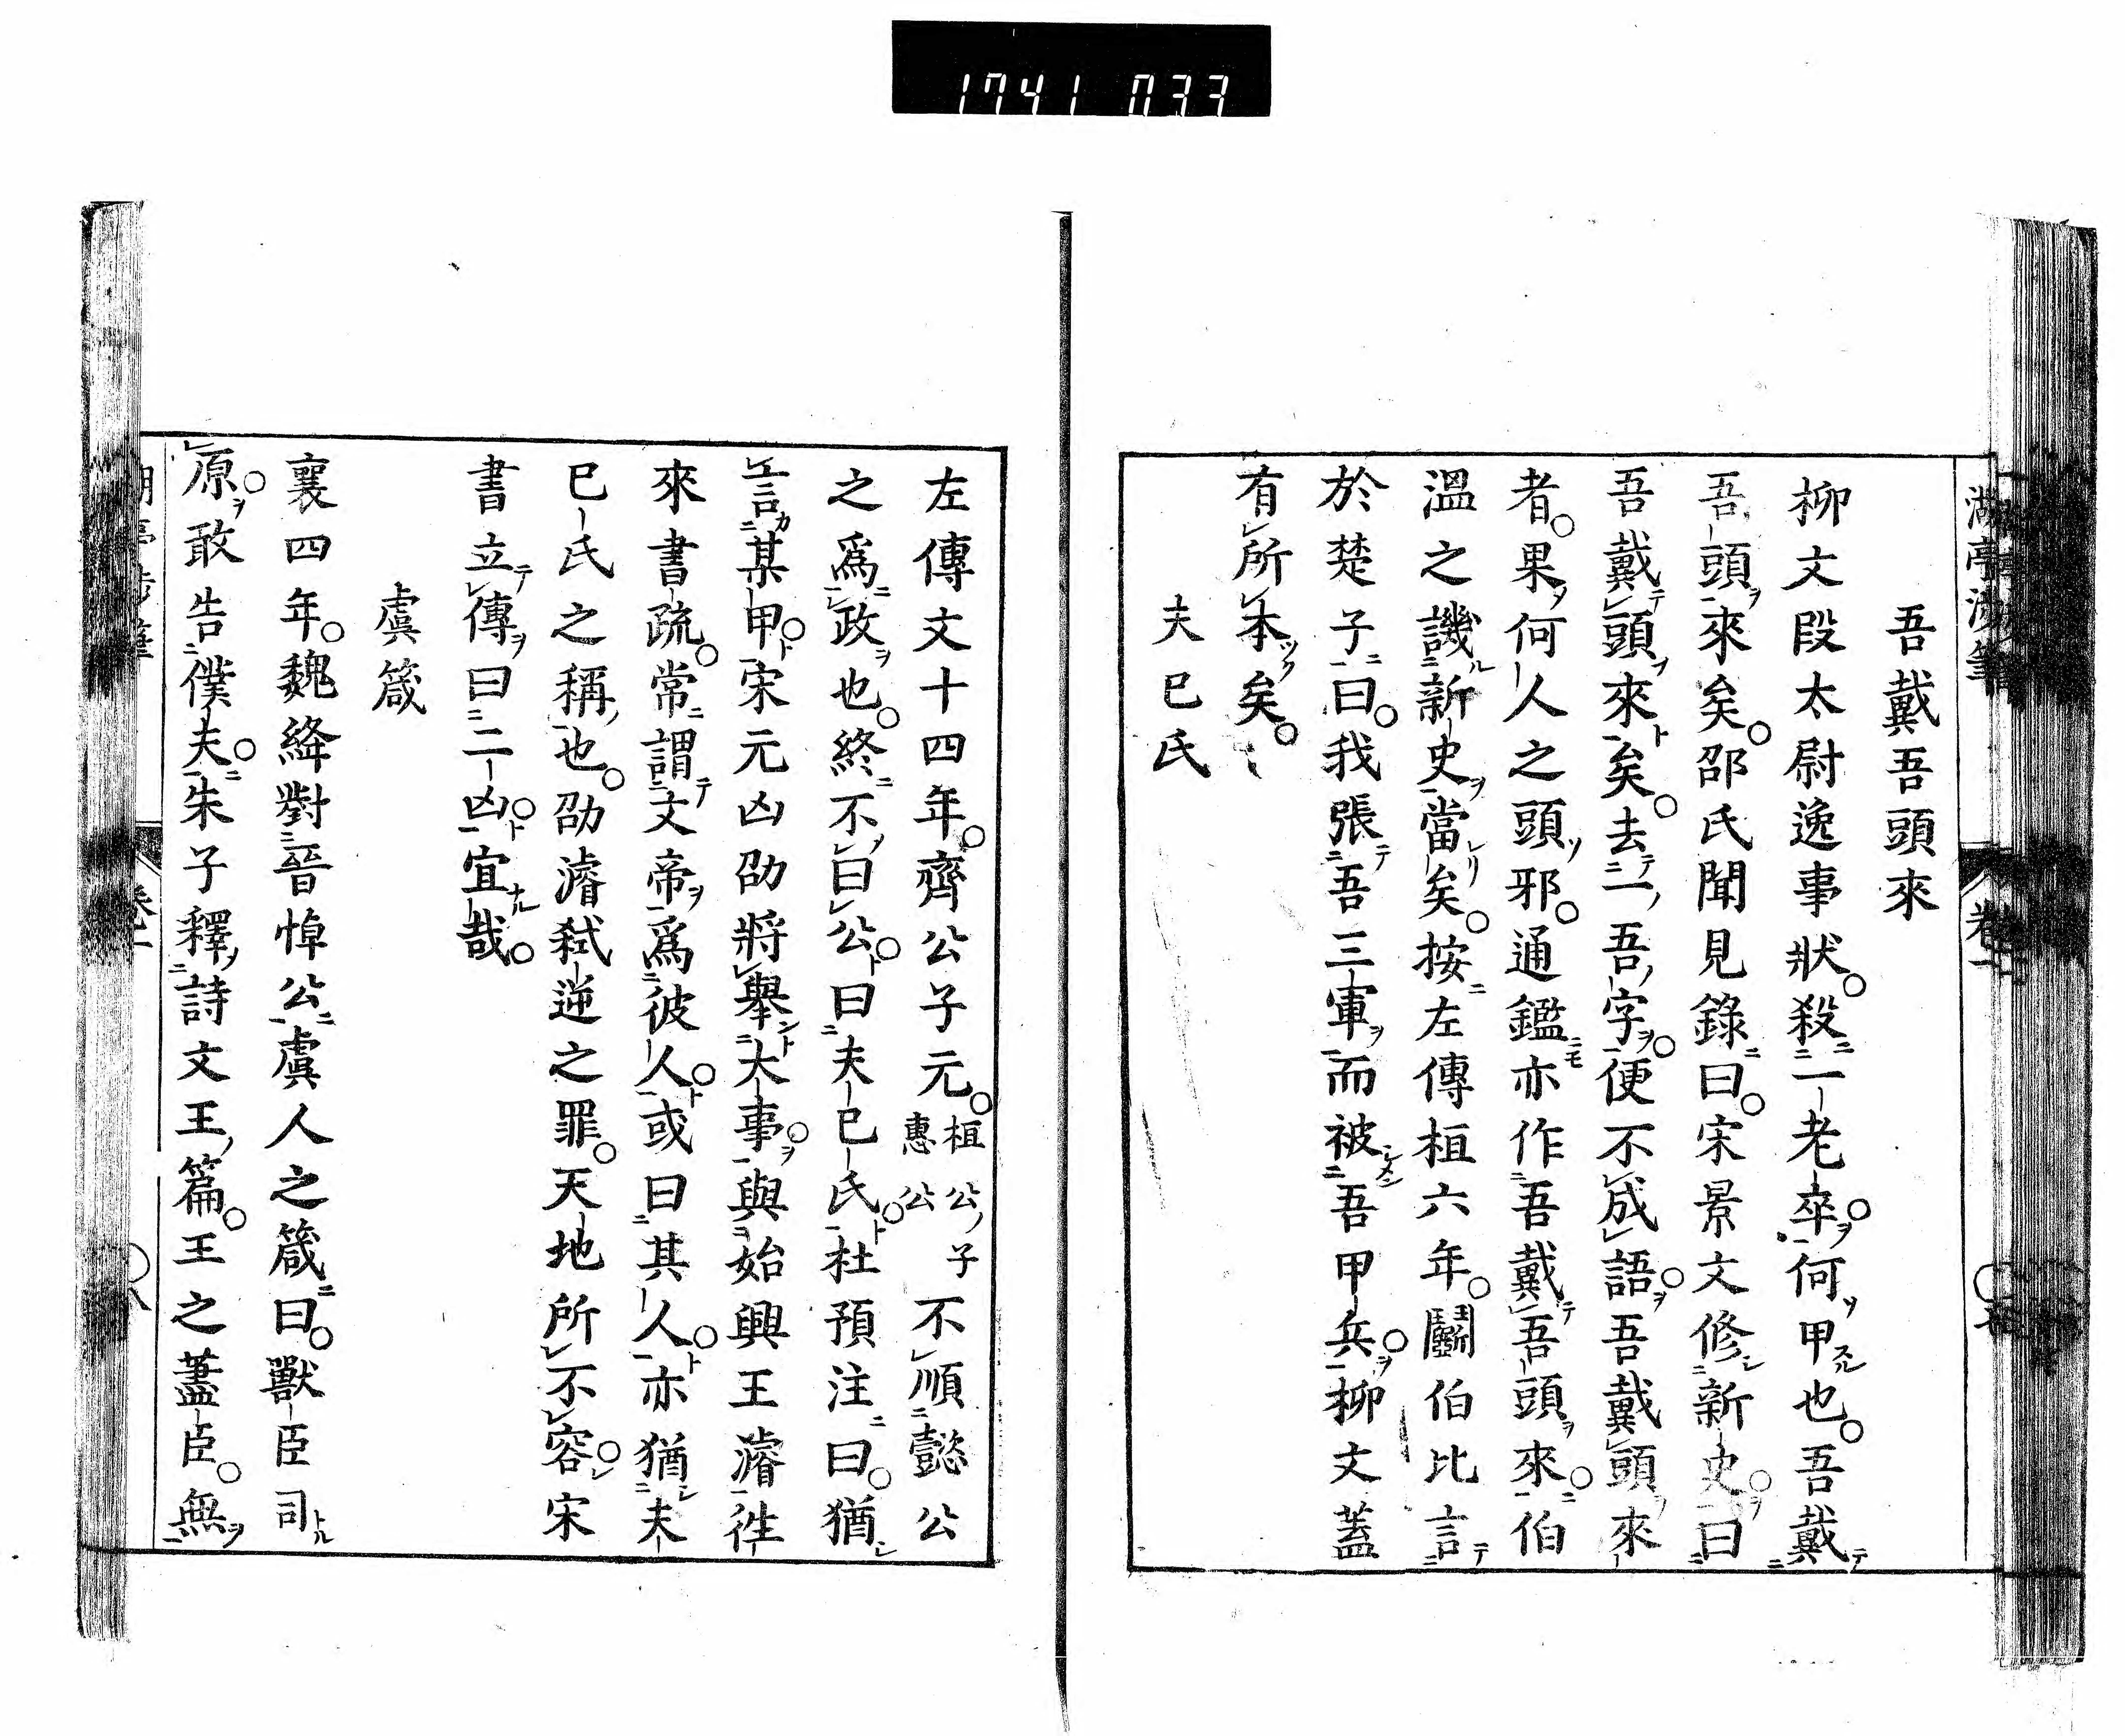 1741 033
湖亭涉筆 卷一
吾戴吾頭來
柳文段太尉逸事狀殺一老卒何甲也吾戴
吾頭來矣邵氏聞見錄曰宋景文修新史曰
吾戴頭來矣去一吾字便不成語吾戴頭來
者果何人之頭邪通鑑亦作吾戴吾頭來伯
溫之譏新史當矣按左傳桓六年鬭伯比言
於楚子曰我張吾三軍而被吾甲兵柳文蓋
有所本矣
夫已氏
左傳文十四年齊公子元桓公子惠公不順懿公
之爲政也終不曰公曰夫已氏杜預注曰猶
言某甲宋元凶劭將舉大事與始興王濬徃
來書疏常謂文帝爲彼人或曰其人人亦猶夫
已氏之稱也劭濬弑逆之罪天地所不容宋
書立傳曰二凶宜哉
虞箴
襄四年魏絳對晉悼公虞人之箴曰獸臣司
原敢告僕夫朱子釋詩文王篇王之藎臣無